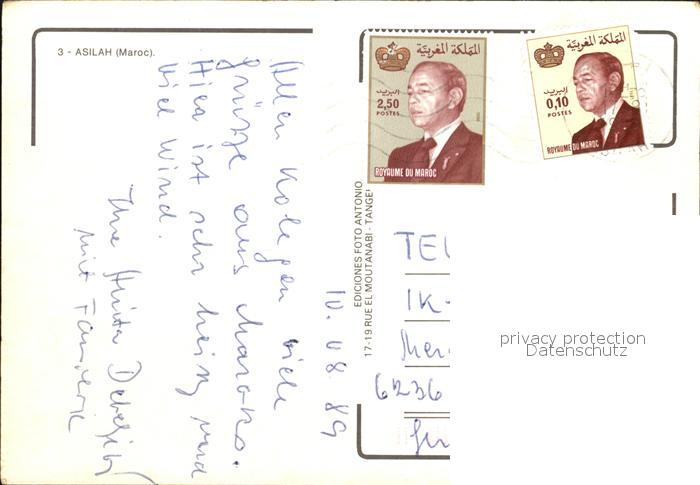 3 - ASILAH (Maroc).
المملكة المغربية
البريد
2,50
POSTES
ROYAUME DU MAROC
المملكة المغربية
البريد
0,10
POSTES
ROYAUME DU MAROC
Allen Kolegen viele
Grüsse aus Marokko.
Hier ist sehr heiss und
viel Wind.
Ihre
mit Familie
10.08.89
EDICIONES FOTO ANTONIO
17-19 RUE EL MOUTANABI - TANGE
IK-
6236
privacy protection
Datenschutz